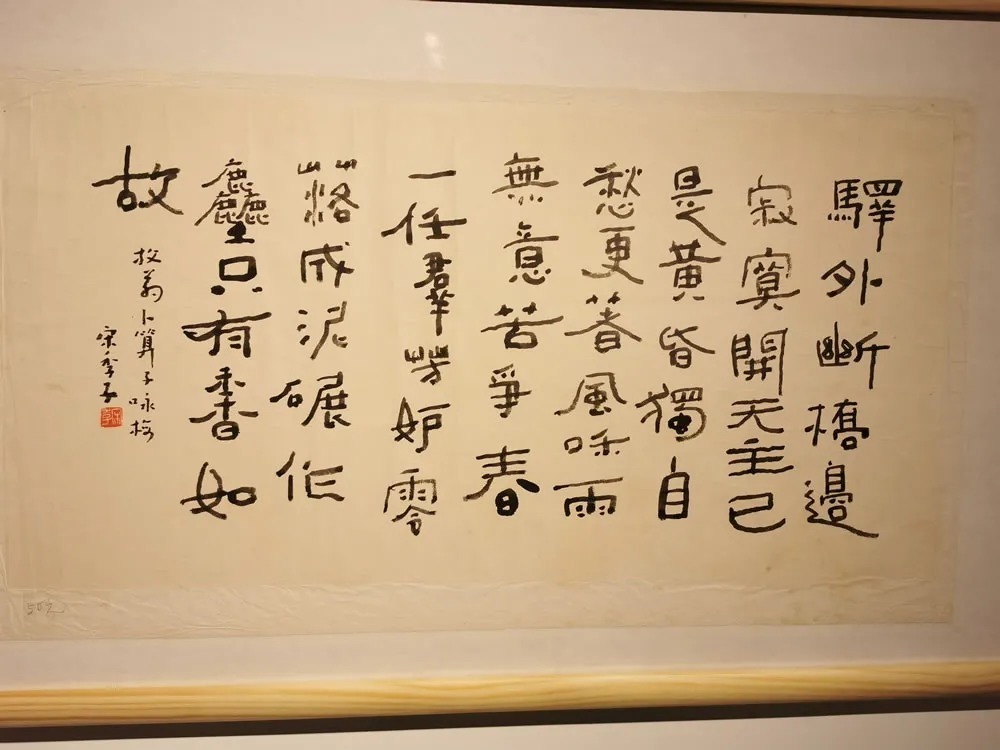 驛外斷橋邊
寂寞開无主已
是黃昏獨自
愁更著風咊雨
無意苦爭春
一任羣芳妒零
落成泥碾作
塵只有香如
故
放翁卜算子咏梅
宋季丁